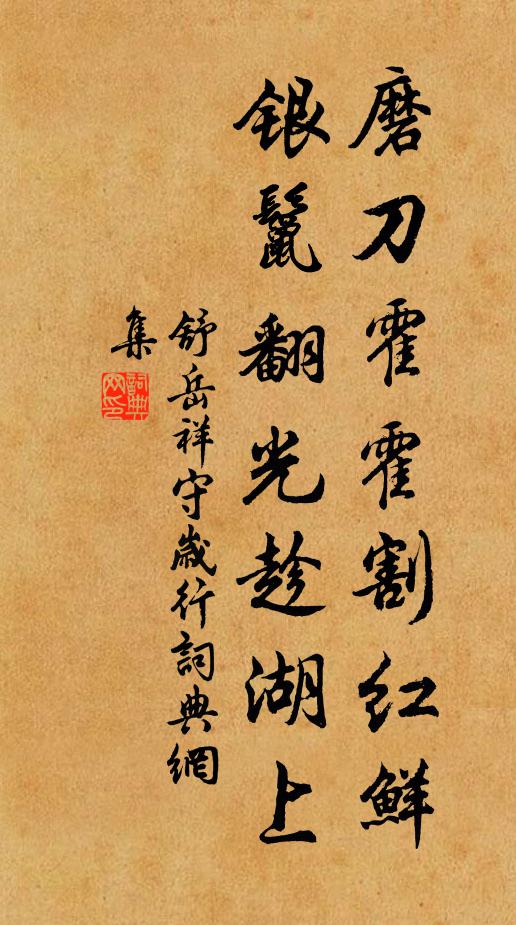 磨刀霍霍割红鲜
银鬣翻光趁湖上
舒岳祥守岁行詞典網
集
詞典网印